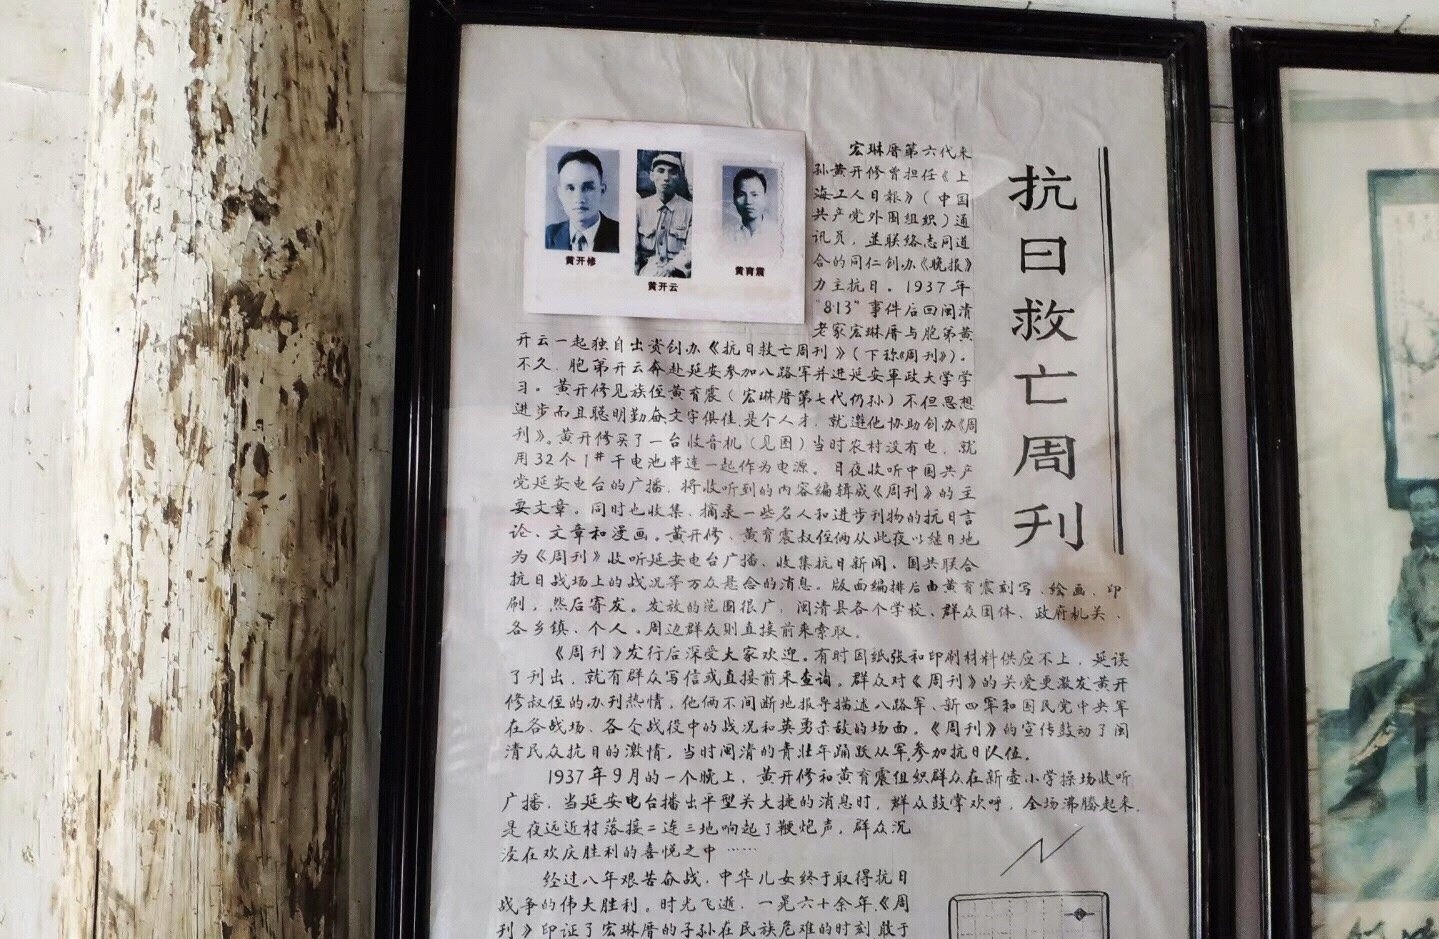 抗日救亡周刊
黄开修
黄开云
黄育震
宏琳厝第六代来
孙黄开修曾担任《上
海工人日报》（中国
共产党外围组织）通
讯员，並联络志同道
合的同仁创办《晚报》
力主抗日。1937年
"8·13"事件后回闽清
老家宏琳厝与胞弟黄
开云一起独自出资创办《抗日救亡周刊》（下称《周刊》）。
不久，胞弟开云奔赴延安参加八路军并进延安軍政大学学
习。黄开修见族侄黄育震（宏琳厝第七代仍孙）不但思想
进步而且聪明勤奋,文字俱佳,是个人才，就邀他协助创办《周
刊》。黄开修买了一台收音机（见图）当时农村没有电，就
用32个1#干电池串连一起作为电源。日夜收听中国共产
党延安电台的广播，将收听到的内容编辑成《周刊》的主
要文章。同时也收集、摘录一些名人和进步刊物的抗日言
论、文章和漫画。黄开修、黄育震叔侄俩从此夜以继日地
为《周刊》收听延安电台广播、收集抗日新闻，国共联合
抗日战场上的战况等万众悬念的消息。版面编排后由黄育震刻写、绘画、印
刷，然后寄发。发放的范围很广，闽清县各个学校、群众团体、政府机关、
各乡镇、个人。周边群众则直接前来索取。
《周刊》发行后深受大家欢迎。有时因纸张和印刷材料供应不上，延误
了刊出，就有群众写信或直接前来查询。群众对《周刊》的关爱更激发黄开
修叔侄的办刊热情，他俩不间断地报导描述八路军、新四军和国民党中央军
在各战场、各仝战役中的战况和英勇杀敌的场面。《周刊》的宣传鼓动了闽
清民众抗日的激情，当时闽清的青壮年踊跃从军,参加抗日队伍。
1937年9月的一个晚上，黄开修和黄育震组织群众在新壶小学操场收听
广播，当延安电台播出平型关大捷的消息时，群众鼓掌欢呼，全场沸腾起来，
是夜远近村落接二连三地响起了鞭炮声，群众沉
浸在欢庆胜利的喜悦之中……
经过八年艰苦奋战，中华儿女终于取得抗日
战争的伟大胜利。时光飞逝，一晃六十余年《周
刊》印证了宏琳厝的子孙在民族危难的时刻敢于